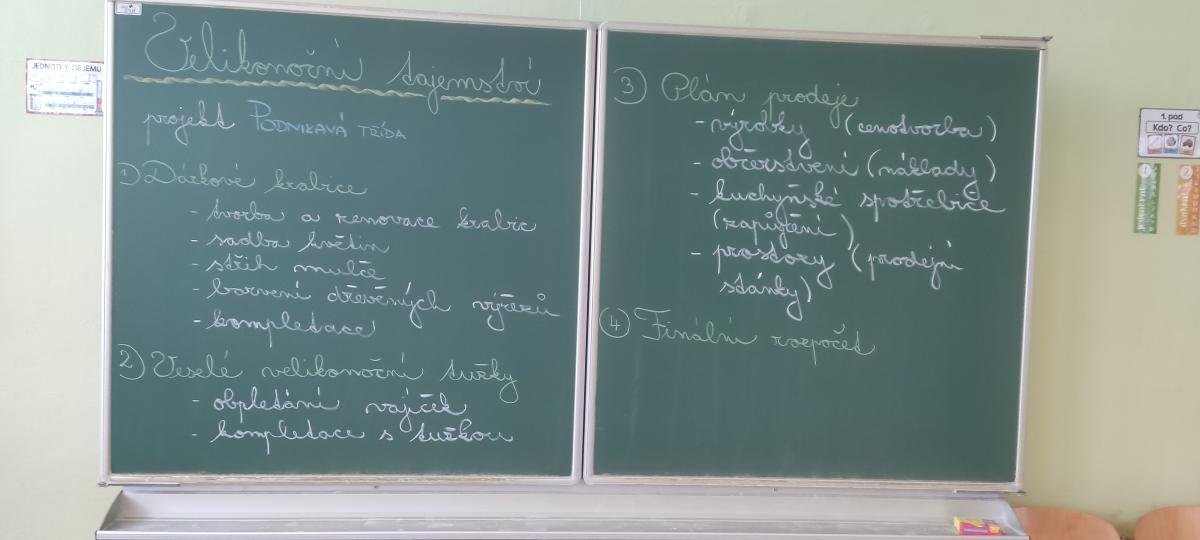 Velikonoční tajemství
projekt PODNIKAVÁ TŘÍDA
1) Dárkové krabice
- tvorba a renovace krabic
- sadba květin
- střih mulče
- barvení dřevěných výřezů
- kompletace
2) Veselé velikonoční tužky
- obpletání vajíček
- kompletace s tužkou
3) Plán prodeje
- výrobky (cenotvorba)
- občerstvení (náklady)
- kuchyňské spotřebiče
(zapůjčení)
- prostory (prodejní
stánky)
4) Finální rozpočet
JEDNOTKY OBJEMU
1. pád
Kdo? Co?